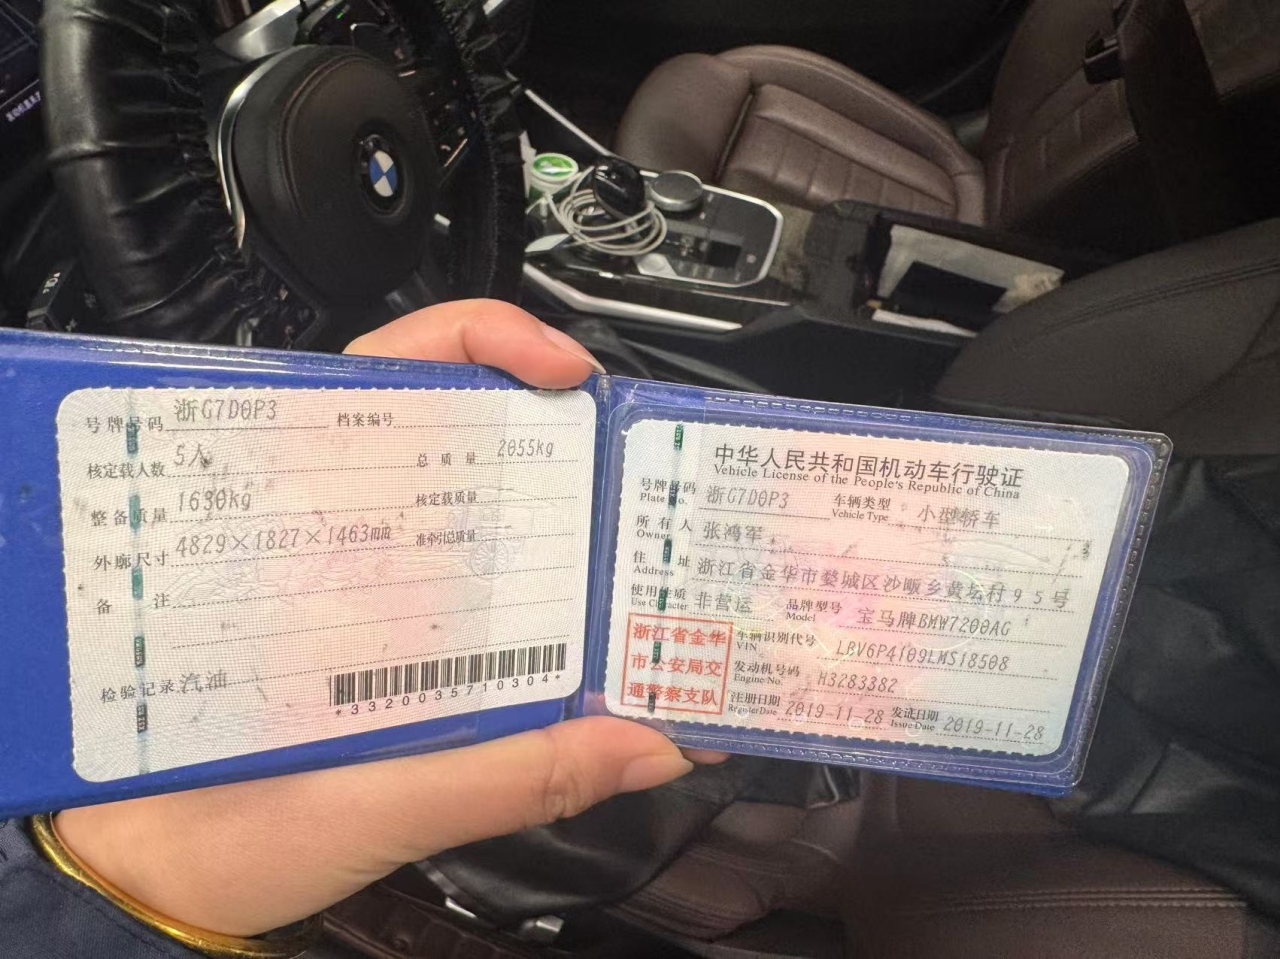 号牌号码 浙G7D0P3 档案编号
核定载人数 5人 总质量 2055kg
整备质量 1630kg 核定载质量
外廓尺寸 4829×1827×1463mm 准牵引总质量
备注
检验记录 汽油
*3320035710304*
中华人民共和国机动车行驶证
Vehicle License of the People's Republic of China
号牌号码 浙G7D0P3 车辆类型 小型轿车
Plate No. Vehicle Type
所有人 张鸿军
Owner
住址 浙江省金华市婺城区沙畈乡黄坛村95号
Address
使用性质 非营运 品牌型号 宝马牌BMW7200AG
Use Character Model
浙江省金华
市公安局交
通警察支队
车辆识别代号 LBV6P4109LMS18508
VIN
发动机号码 H3283382
Engine No.
注册日期 2019-11-28 发证日期 2019-11-28
Register Date Issue Date